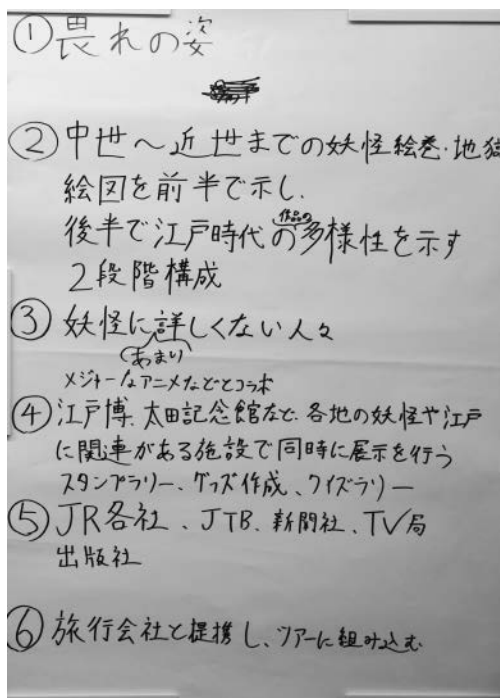 ①畏れの姿
②中世〜近世までの妖怪絵巻・地獄
絵図を前半で示し、
後半で江戸時代の作品の多様性を示す
2段階構成
③妖怪に詳しくない人々
(あまり)
メジャーなアニメなどとコラボ
④江戸博、太田記念館など、各地の妖怪や江戸
に関連がある施設で同時に展示を行う
スタンプラリー、グッズ作成、クイズラリー
⑤JR各社、JTB、新聞社、TV局
出版社
⑥旅行会社と提携し、ツアーに組み込む